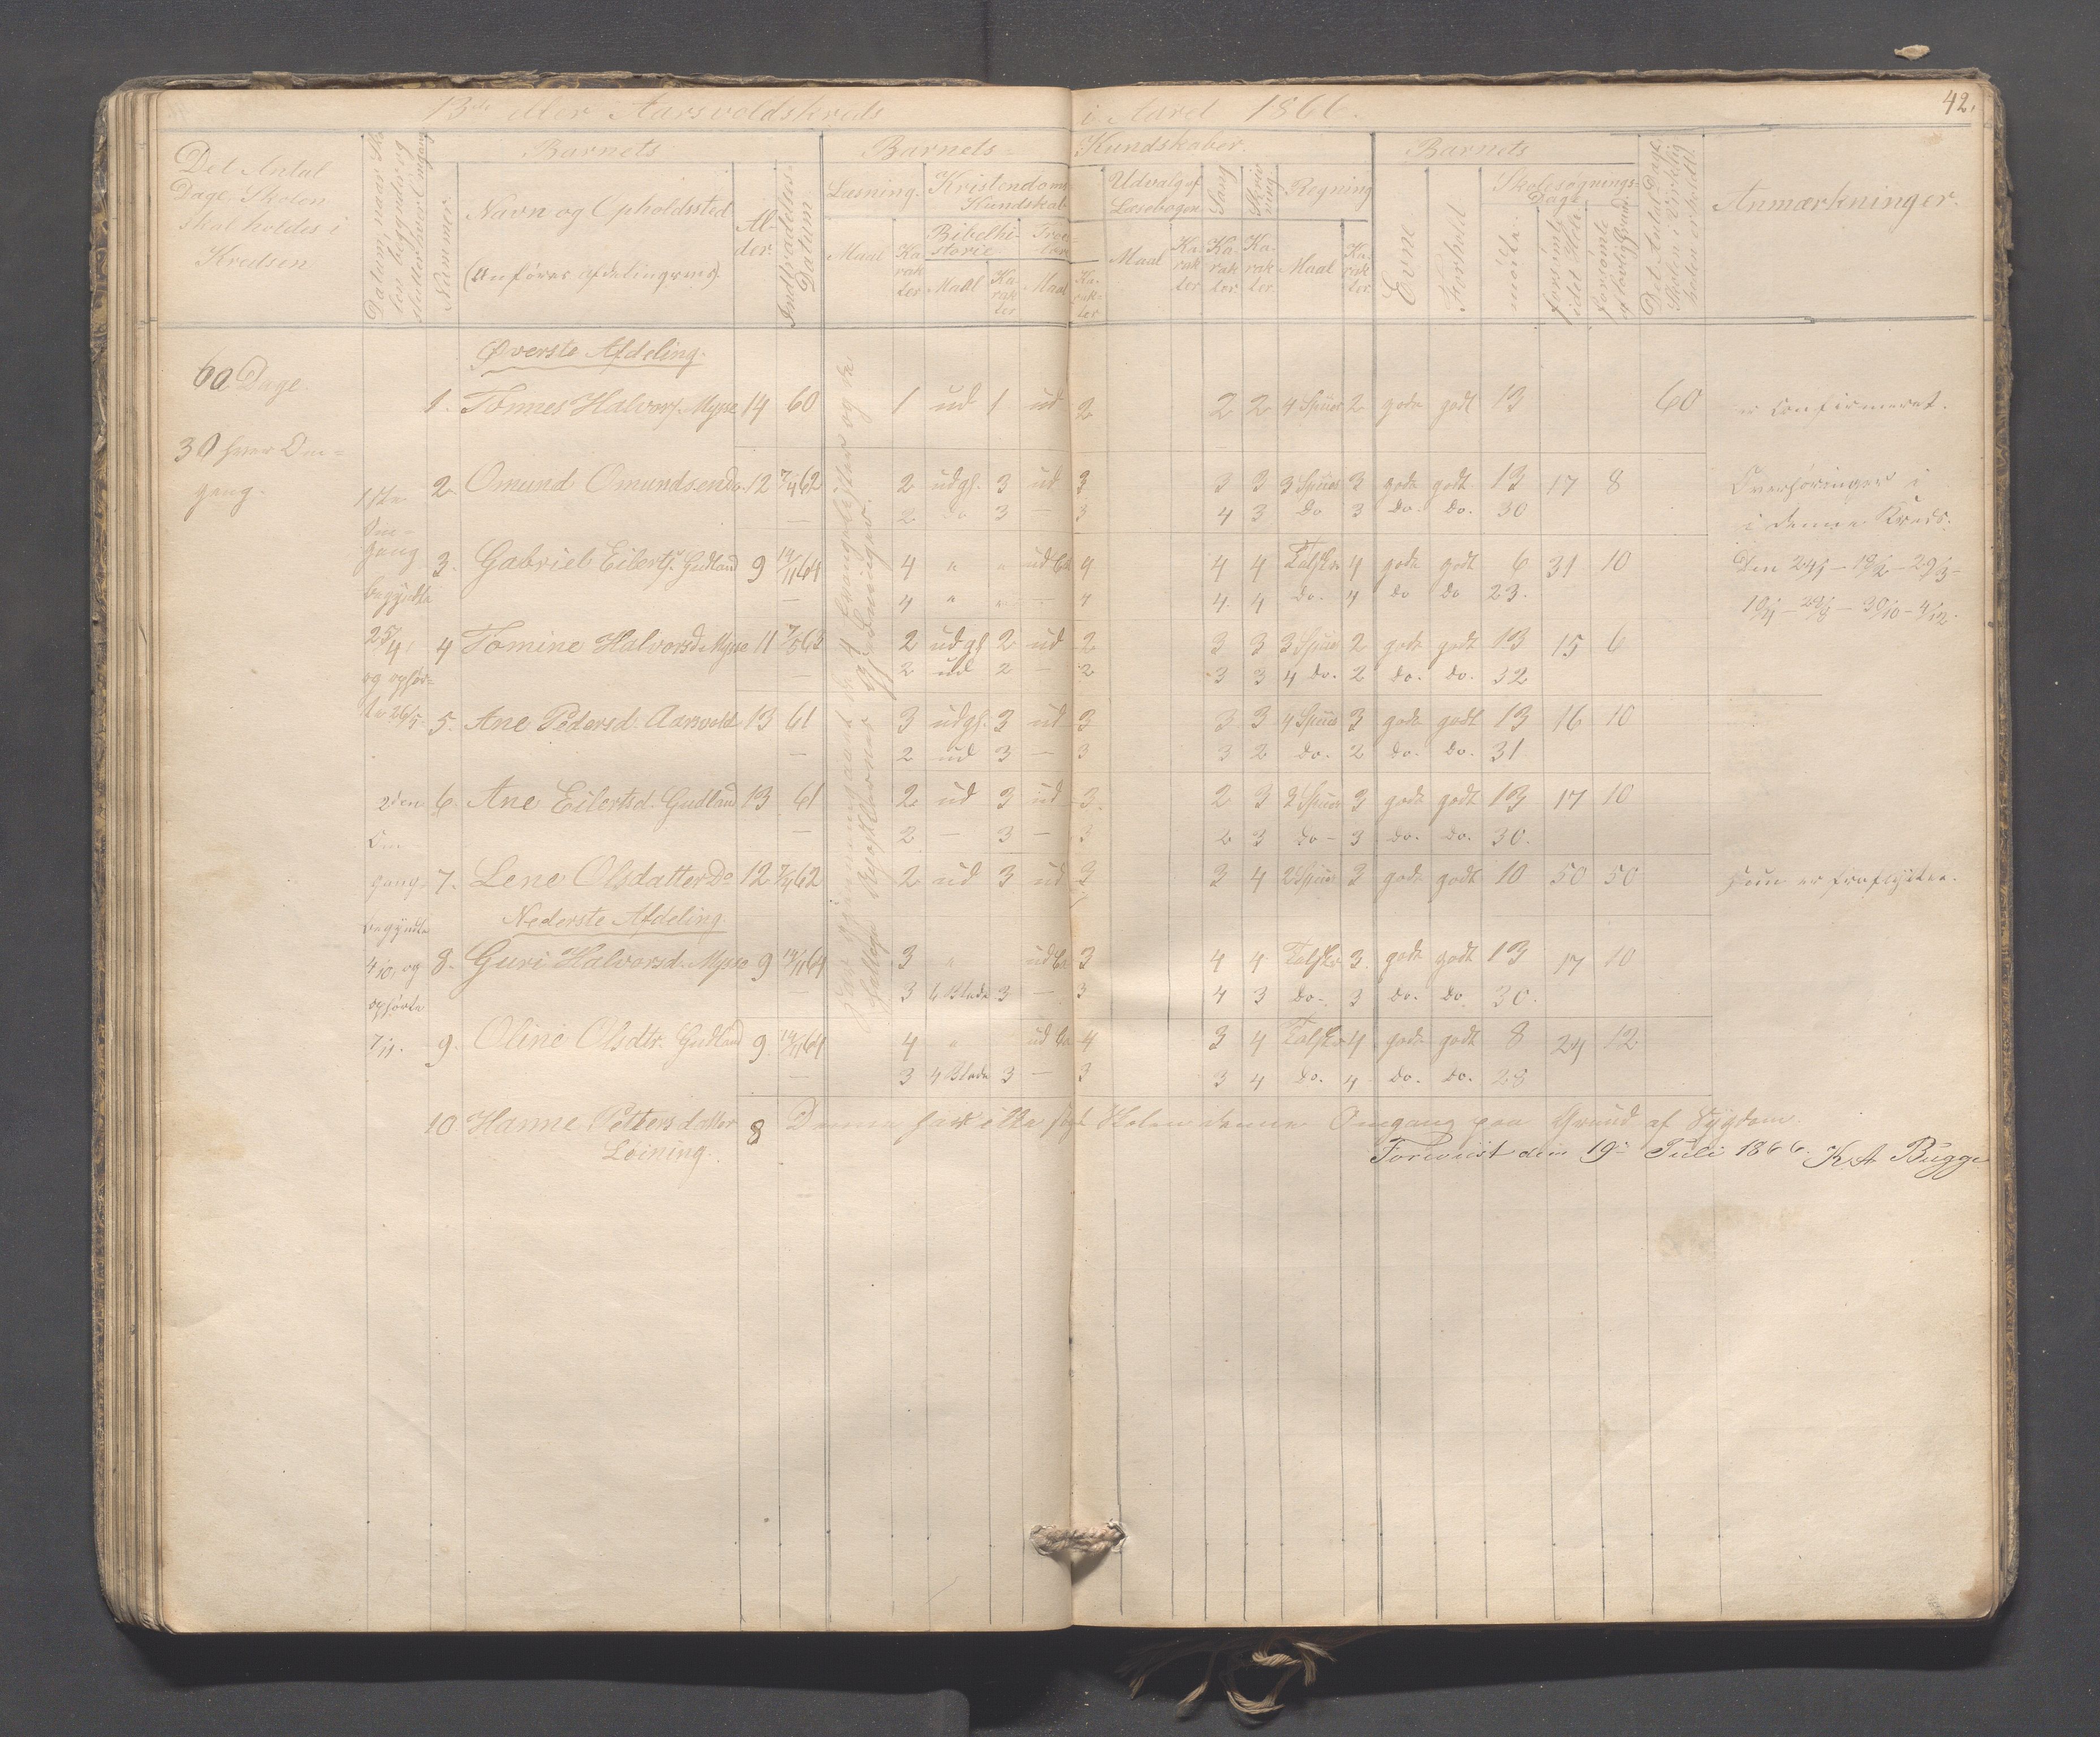 42.
13de eller Aarsvoldskreds i Aaret 1866.
Det Antal Dage, Skolen skal holdes i Kredsen
Datum, naar Skolen begynder og slutter hver Omgang
Nummer
Barnets
Navn og Opholdssted
(Anføres afdelingsvis).
Alder.
Indtrædelses Datum.
Barnets Kundskaber.
Læsning. Maal Karakter
Kristendoms Kundskab
Bibelhistorie Maal Karakter
Troeslære Maal Karakter
Udvalg af Læsebogen Maal Karakter
Sang Karakter
Skrivning Karakter
Regning Maal Karakter
Barnets
Evne
Forhold.
Skolesøgnings-Dage
mødte.
forsømte i det Hele
forsømte af lovlig Grund.
Det Antal Dage, Skolen i Virkeligheden er holdt.
Anmærkninger.
60 Dage
30 hver Omgang.
1ste Omgang begyndte 25/4, og ophørte 26/5
2den Omgang begyndte 4/10, og ophørte 7/11.
Øverste Afdeling.
1. Tønnes Halvors. Mysse 14 60 1 ud 1 ud 2 2 2 4 Spiies 2 gode godt 13 60 er Confirmeret.
2. Omund Omundsen Do. 12 7/4 62 2 udgf. 3 ud 3 3 3 3 Spiies 3 gode godt 13 17 8 Overhøringer i
2 do 3 — 3 4 3 Do 3 do. do. 30 i denne Kreds.
3. Gabriel Eilerts. Gudland 9 14/11 64 4 " " ud 4 4 4 4 gode godt 6 31 10 Den 24/1 – 19/2 – 29/3 –
4 " " — 4 4 4 do. 4 do do 23.
4 Tomine Halvorsd. Mysse 11 63 2 udgf 2 ud 2 3 3 3 Spiies 2 gode godt 13 15 6
2 ud 2 — 2 3 3 4 do. 2 do. do. 32
5. Ane Pedersd. Aarsvold 13 61 3 udgf. 3 ud 3 3 3 4 Spiies 3 gode godt 13 16 10
2 ud 3 — 3 3 2 do. 2 do. do. 31
6. Ane Eilertsd. Gudland 13 61 2 ud 3 ud 3. 2 3 2 Spiies 3 gode godt 13 17 10
2 — 3 — 3 2 3 do – 3 do. do. 30.
7. Lene Olsdatter Do 12 7/4 62 2 ud 3 ud 3 3 4 2 Spiies 3 gode godt 10 50 50 Hun er fraflyttet.
Nederste Afdeling.
8. Guri Halvorsd. Mysse 9 14/11 64 3 " ud 3 4 4 3. gode godt 13 17 10
3 6 Blade 3 — 3 4 3 do – 3 do. do. 30.
9. Oline Olsdtr. Gudland 9 14/11 64 4 " ud 4 3 4 4 gode godt 8 24 12
3 4 Blade 3 — 3 3 4 do. 4 do. do. 28
10. Hanne Pettersdatter 8 Denne har ikke søgt Skolen denne Omgang paa Grund af Sygdom.
Leining.
Foreviist den 19de Juli 1866. K A Bugge